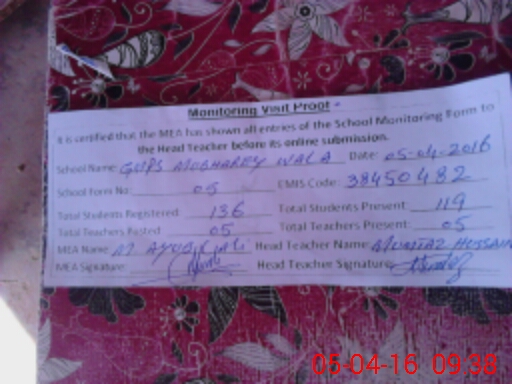 Monitoring Visit Proof
It is certified that the MEA has shown all entries of the School Monitoring Form to
the Head Teacher before its online submission.
School Name: GUPS MOBHAREY WALA Date: 05-04-2016
School Form No: 05 EMIS Code: 38450482
Total Students Registered 136 Total Students Present: 119
Total Teachers Posted 05 Total Teachers Present: 05
MEA Name: M AYOUB Head Teacher Name: MUMTAZ HUSSAIN
MEA Signature: Head Teacher Signature:
05-04-16 09:38